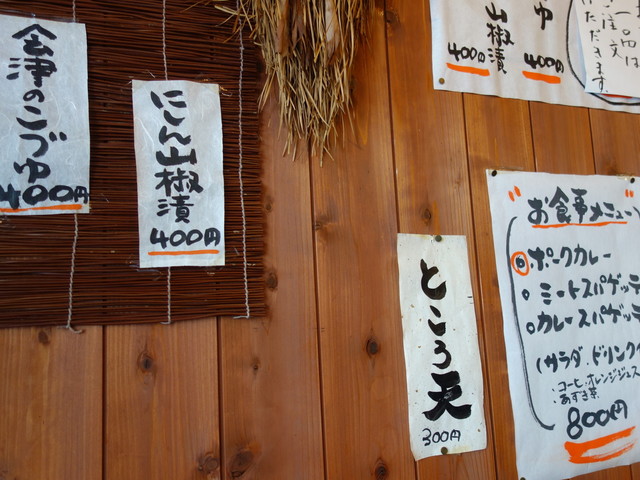 会津のこづゆ
400円
にん山椒漬
400円
ところ天
300円
山椒漬
400円
ゆ
400円
一品は
ご注文
いただきます。
"お食事メニュー
ポークカレー
ミートスパゲッテ
カレースパゲッテ
(サラダ、ドリンク
・コーヒ・オレンジジュス
・あずき茶
800円